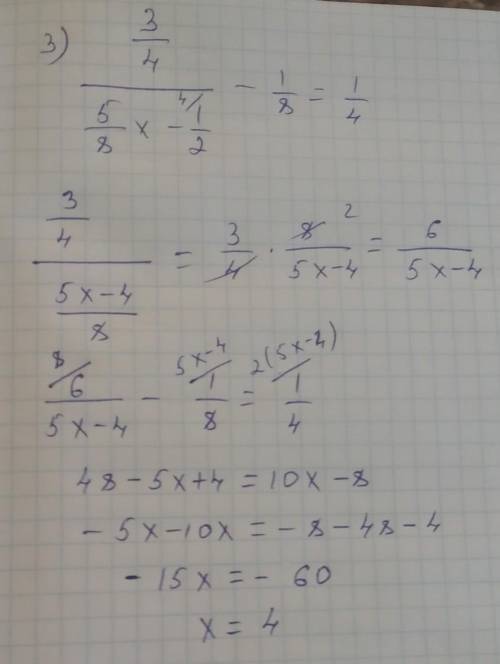 3) (3/4)/(5/8 x - ⁴/ 1/2) - 1/8 = 1/4
(3/4)/((5x-4)/8) = 3/4 · 8²/(5x-4) = 6/(5x-4)
⁸/ 6/(5x-4) - ⁵ˣ⁻⁴/ 1/8 = ²⁽⁵ˣ⁻⁴⁾/ 1/4
48-5x+4 = 10x-8
-5x-10x = -8-48-4
-15x = -60
x = 4